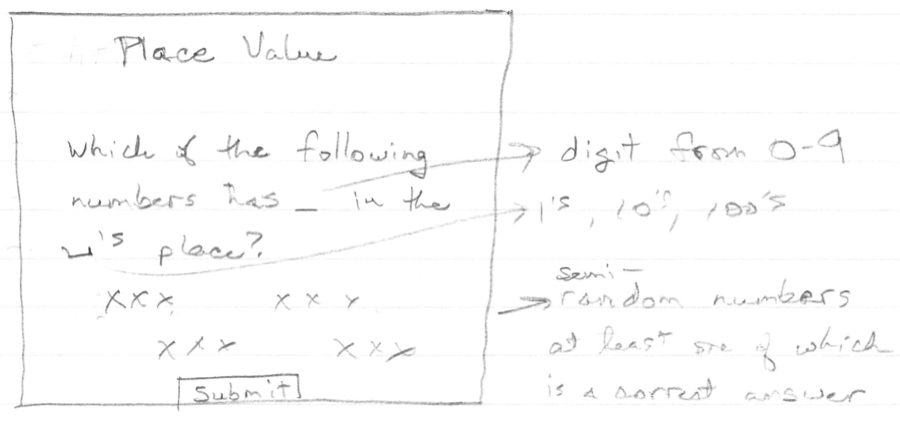 Place Value
which of the following
numbers has _ in the
_'s place?
xxx xxx
xxx xxx
Submit
digit from 0-9
1's, 10's, 100's
semi-
random numbers
at least one of which
is a correct answer